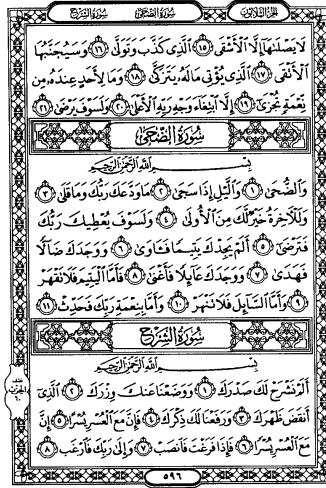 الجزء الثلاثون سورة الضحى سورة الشرح
لَا يَصْلَىٰهَآ إِلَّا ٱلْأَشْقَى ١٥ ٱلَّذِى كَذَّبَ وَتَوَلَّىٰ ١٦ وَسَيُجَنَّبُهَا
ٱلْأَتْقَى ١٧ ٱلَّذِى يُؤْتِى مَالَهُۥ يَتَزَكَّىٰ ١٨ وَمَا لِأَحَدٍ عِندَهُۥ مِن
نِّعْمَةٍ تُجْزَىٰٓ ١٩ إِلَّا ٱبْتِغَآءَ وَجْهِ رَبِّهِ ٱلْأَعْلَىٰ ٢٠ وَلَسَوْفَ يَرْضَىٰ ٢١
سُورَةُ الضُّحَى
بِسْمِ ٱللَّهِ ٱلرَّحْمَٰنِ ٱلرَّحِيمِ
وَٱلضُّحَىٰ ١ وَٱلَّيْلِ إِذَا سَجَىٰ ٢ مَا وَدَّعَكَ رَبُّكَ وَمَا قَلَىٰ ٣
وَلَلْءَاخِرَةُ خَيْرٌ لَّكَ مِنَ ٱلْأُولَىٰ ٤ وَلَسَوْفَ يُعْطِيكَ رَبُّكَ
فَتَرْضَىٰٓ ٥ أَلَمْ يَجِدْكَ يَتِيمًا فَـَٔاوَىٰ ٦ وَوَجَدَكَ ضَآلًّا
فَهَدَىٰ ٧ وَوَجَدَكَ عَآئِلًا فَأَغْنَىٰ ٨ فَأَمَّا ٱلْيَتِيمَ فَلَا تَقْهَرْ
٩ وَأَمَّا ٱلسَّآئِلَ فَلَا تَنْهَرْ ١٠ وَأَمَّا بِنِعْمَةِ رَبِّكَ فَحَدِّثْ ١١
سُورَةُ الشَّرْحِ
بِسْمِ ٱللَّهِ ٱلرَّحْمَٰنِ ٱلرَّحِيمِ
أَلَمْ نَشْرَحْ لَكَ صَدْرَكَ ١ وَوَضَعْنَا عَنكَ وِزْرَكَ ٢ ٱلَّذِىٓ
أَنقَضَ ظَهْرَكَ ٣ وَرَفَعْنَا لَكَ ذِكْرَكَ ٤ فَإِنَّ مَعَ ٱلْعُسْرِ يُسْرًا ٥ إِنَّ
مَعَ ٱلْعُسْرِ يُسْرًا ٦ فَإِذَا فَرَغْتَ فَٱنصَبْ ٧ وَإِلَىٰ رَبِّكَ فَٱرْغَب ٨
٥٩٦